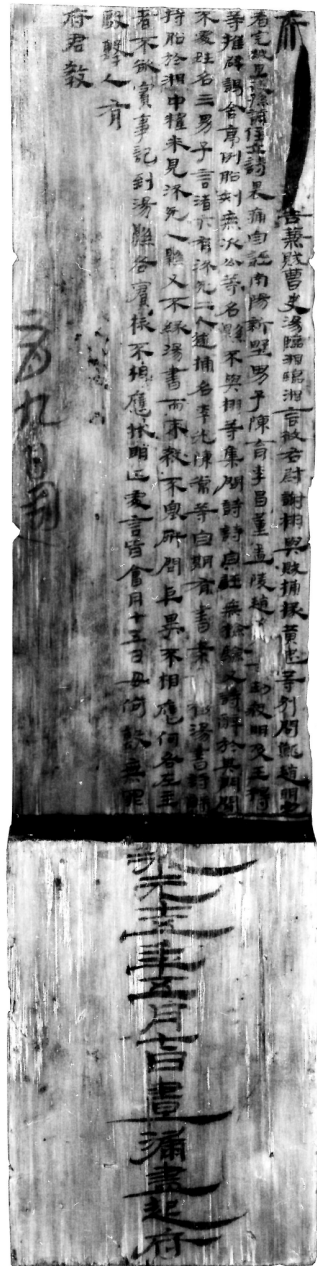 府告兼賊曹史湯臨湘臨湘言攸右尉謝栩與賊捕掾黃忠等別問僦趙明宅
者完城旦徒孫詩住立詩畏痛自誣南陽新野男子陳育李昌董孟陵趙劫殺明及王得
等推辟謁舍亭例船刺無次公等名縣不與栩等集問詩詩自誣無檢驗又詩辭於其門聞
不處姓名三男子言渚下有流死二人逐捕名李光陳常等自期有書案移湯書詩辭
持船於湘中糴米見流死人縣又不綠湯書而未殺不塞所問巨異不相應何咎在主
者不欲實事記到湯縣各實核不相應狀明正處言皆會月十五日毋佝毄無罪
毆擊人有
府君教
六月九日開
永元十五年五月七日晝漏盡起府